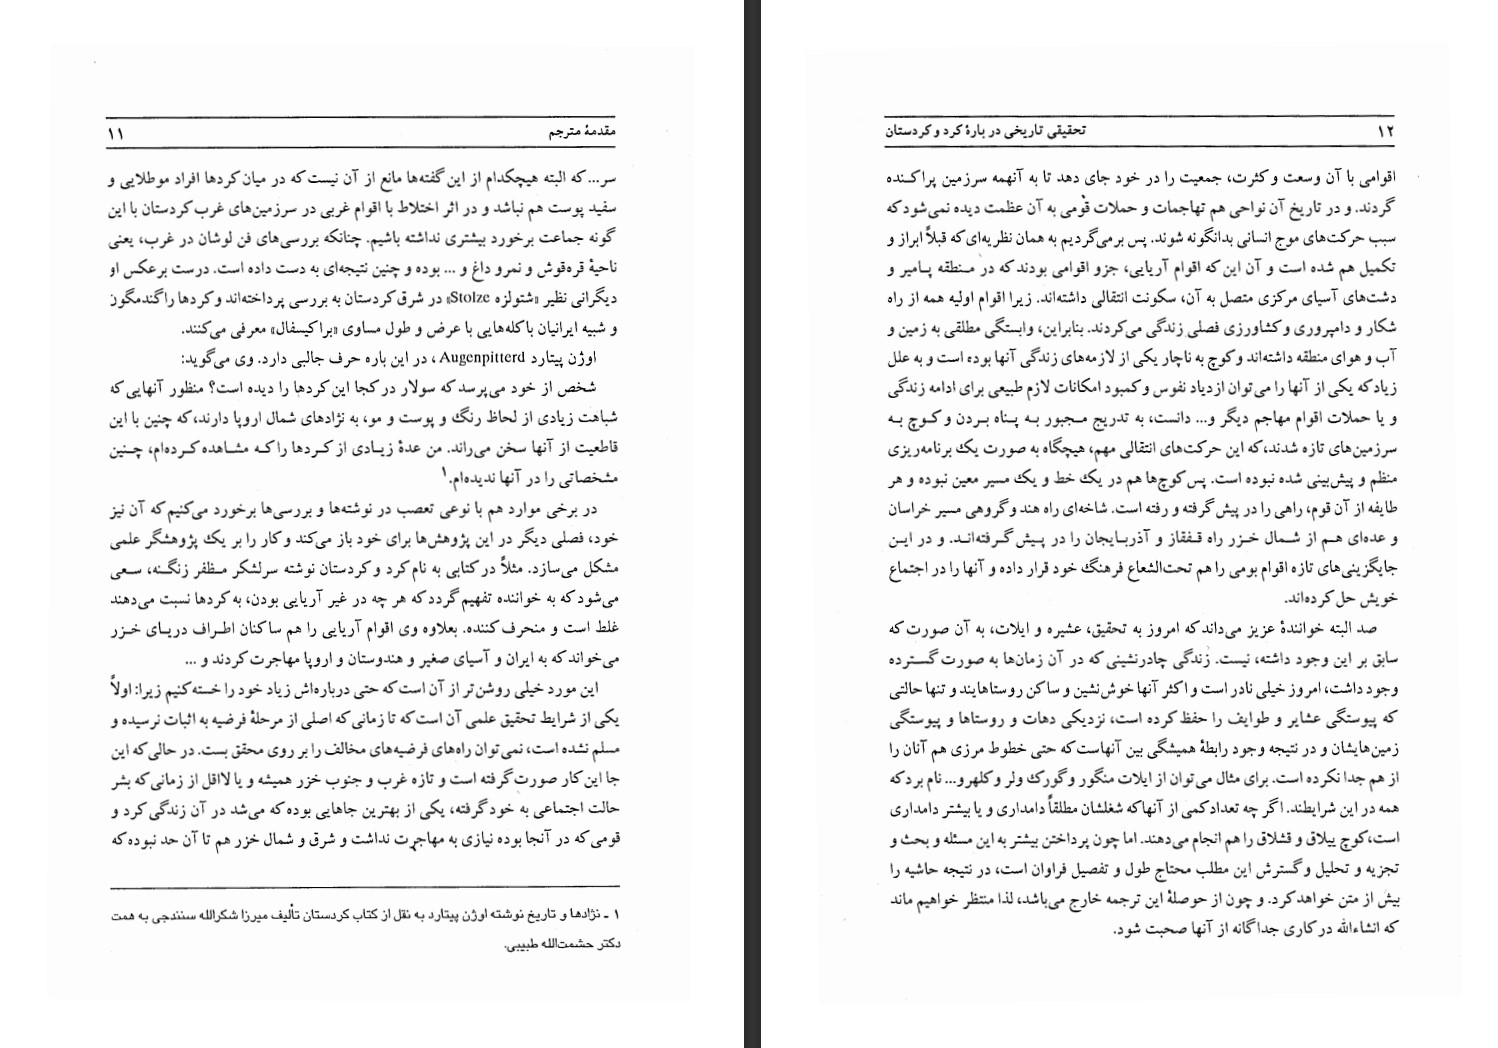 مقدمهٔ مترجم ۱۱
سر... که البته هیچکدام از این گفته‌ها مانع از آن نیست که در میان کردها افراد موطلایی و
سفید پوست هم نباشد و در اثر اختلاط با اقوام غربی در سرزمین‌های غرب کردستان با این
گونه جماعت برخورد بیشتری نداشته باشیم. چنانکه بررسی‌های فن لوشان در غرب، یعنی
ناحیهٔ قره‌قوش و نمرو داغ و ... بوده و چنین نتیجه‌ای به دست داده است. درست برعکس او
دیگرانی نظیر «شتولزه Stolze» در شرق کردستان به بررسی پرداخته‌اند و کردها را گندمگون
و شبیه ایرانیان با کله‌هایی با عرض و طول مساوی «براکیسفال» معرفی می‌کنند.
اوژن پیتارد Augenpitterd ، در این باره حرف جالبی دارد. وی می‌گوید:
شخص از خود می‌پرسد که سولار در کجا این کردها را دیده است؟ منظور آنهایی که
شباهت زیادی از لحاظ رنگ و پوست و مو، به نژادهای شمال اروپا دارند، که چنین با این
قاطعیت از آنها سخن می‌راند. من عدهٔ زیادی از کردها را که مشاهده کرده‌ام، چنین
مشخصاتی را در آنها ندیده‌ام.۱
در برخی موارد هم با نوعی تعصب در نوشته‌ها و بررسی‌ها برخورد می‌کنیم که آن نیز
خود، فصلی دیگر در این پژوهش‌ها برای خود باز می‌کند و کار را بر یک پژوهشگر علمی
مشکل می‌سازد. مثلاً در کتابی به نام کرد و کردستان نوشته سرلشکر مظفر زنگنه، سعی
می‌شود که به خواننده تفهیم گردد که هر چه در غیر آریایی بودن، به کردها نسبت می‌دهند
غلط است و منحرف کننده. بعلاوه وی اقوام آریایی را هم ساکنان اطراف دریای خزر
می‌خواند که به ایران و آسیای صغیر و هندوستان و اروپا مهاجرت کردند و ...
این مورد خیلی روشن‌تر از آن است که حتی درباره‌اش زیاد خود را خسته کنیم زیرا: اولاً
یکی از شرایط تحقیق علمی آن است که تا زمانی که اصلی از مرحلهٔ فرضیه به اثبات نرسیده و
مسلم نشده است، نمی‌توان راه‌های فرضیه‌های مخالف را بر روی محقق بست. در حالی که این
جا این کار صورت گرفته است و تازه غرب و جنوب خزر همیشه و یا لااقل از زمانی که بشر
حالت اجتماعی به خود گرفته، یکی از بهترین جاهایی بوده که می‌شد در آن زندگی کرد و
قومی که در آنجا بوده نیازی به مهاجرت نداشت و شرق و شمال خزر هم تا آن حد نبوده که
۱ ـ نژادها و تاریخ نوشته اوژن پیتارد به نقل از کتاب کردستان تألیف میرزا شکرالله سنندجی به همت
دکتر حشمت‌الله طبیبی.
۱۲ تحقیقی تاریخی در بارهٔ کرد و کردستان
اقوامی با آن وسعت و کثرت، جمعیت را در خود جای دهد تا به آنهمه سرزمین پراکنده
گردند. و در تاریخ آن نواحی هم تهاجمات و حملات قومی به آن عظمت دیده نمی‌شود که
سبب حرکت‌های موج انسانی بدانگونه شوند. پس برمی‌گردیم به همان نظریه‌ای که قبلاً ابراز و
تکمیل هم شده است و آن این که اقوام آریایی، جزو اقوامی بودند که در منطقه پامیر و
دشت‌های آسیای مرکزی متصل به آن، سکونت انتقالی داشته‌اند. زیرا اقوام اولیه همه از راه
شکار و دامپروری و کشاورزی فصلی زندگی می‌کردند. بنابراین، وابستگی مطلقی به زمین و
آب و هوای منطقه داشته‌اند و کوچ به ناچار یکی از لازمه‌های زندگی آنها بوده است و به علل
زیاد که یکی از آنها را می‌توان ازدیاد نفوس و کمبود امکانات لازم طبیعی برای ادامه زندگی
و یا حملات اقوام مهاجم دیگر و... دانست، به تدریج مجبور به پناه بردن و کوچ به
سرزمین‌های تازه شدند، که این حرکت‌های انتقالی مهم، هیچگاه به صورت یک برنامه‌ریزی
منظم و پیش‌بینی شده نبوده است. پس کوچ‌ها هم در یک خط و یک مسیر معین نبوده و هر
طایفه از آن قوم، راهی را در پیش گرفته و رفته است. شاخه‌ای راه هند و گروهی مسیر خراسان
و عده‌ای هم از شمال خزر راه قفقاز و آذربایجان را در پیش گرفته‌اند. و در این
جایگزینی‌های تازه اقوام بومی را هم تحت‌الشعاع فرهنگ خود قرار داده و آنها را در اجتماع
خویش حل کرده‌اند.
صد البته خوانندهٔ عزیز می‌داند که امروز به تحقیق، عشیره و ایلات، به آن صورت که
سابق بر این وجود داشته، نیست. زندگی چادرنشینی که در آن زمان‌ها به صورت گسترده
وجود داشت، امروز خیلی نادر است و اکثر آنها خوش‌نشین و ساکن روستاهایند و تنها حالتی
که پیوستگی عشایر و طوایف را حفظ کرده است، نزدیکی دهات و روستاها و پیوستگی
زمین‌هایشان و در نتیجه وجود رابطهٔ همیشگی بین آنهاست که حتی خطوط مرزی هم آنان را
از هم جدا نکرده است. برای مثال می‌توان از ایلات منگور و گورک ولر و کلهرو... نام برد که
همه در این شرایطند. اگر چه تعداد کمی از آنها که شغلشان مطلقاً دامداری و یا بیشتر دامداری
است، کوچ ییلاق و قشلاق را هم انجام می‌دهند. اما چون پرداختن بیشتر به این مسئله و بحث و
تجزیه و تحلیل و گسترش این مطلب محتاج طول و تفصیل فراوان است، در نتیجه حاشیه را
بیش از متن خواهد کرد. و چون از حوصلهٔ این ترجمه خارج می‌باشد، لذا منتظر خواهیم ماند
که انشاءالله در کاری جداگانه از آنها صحبت شود.